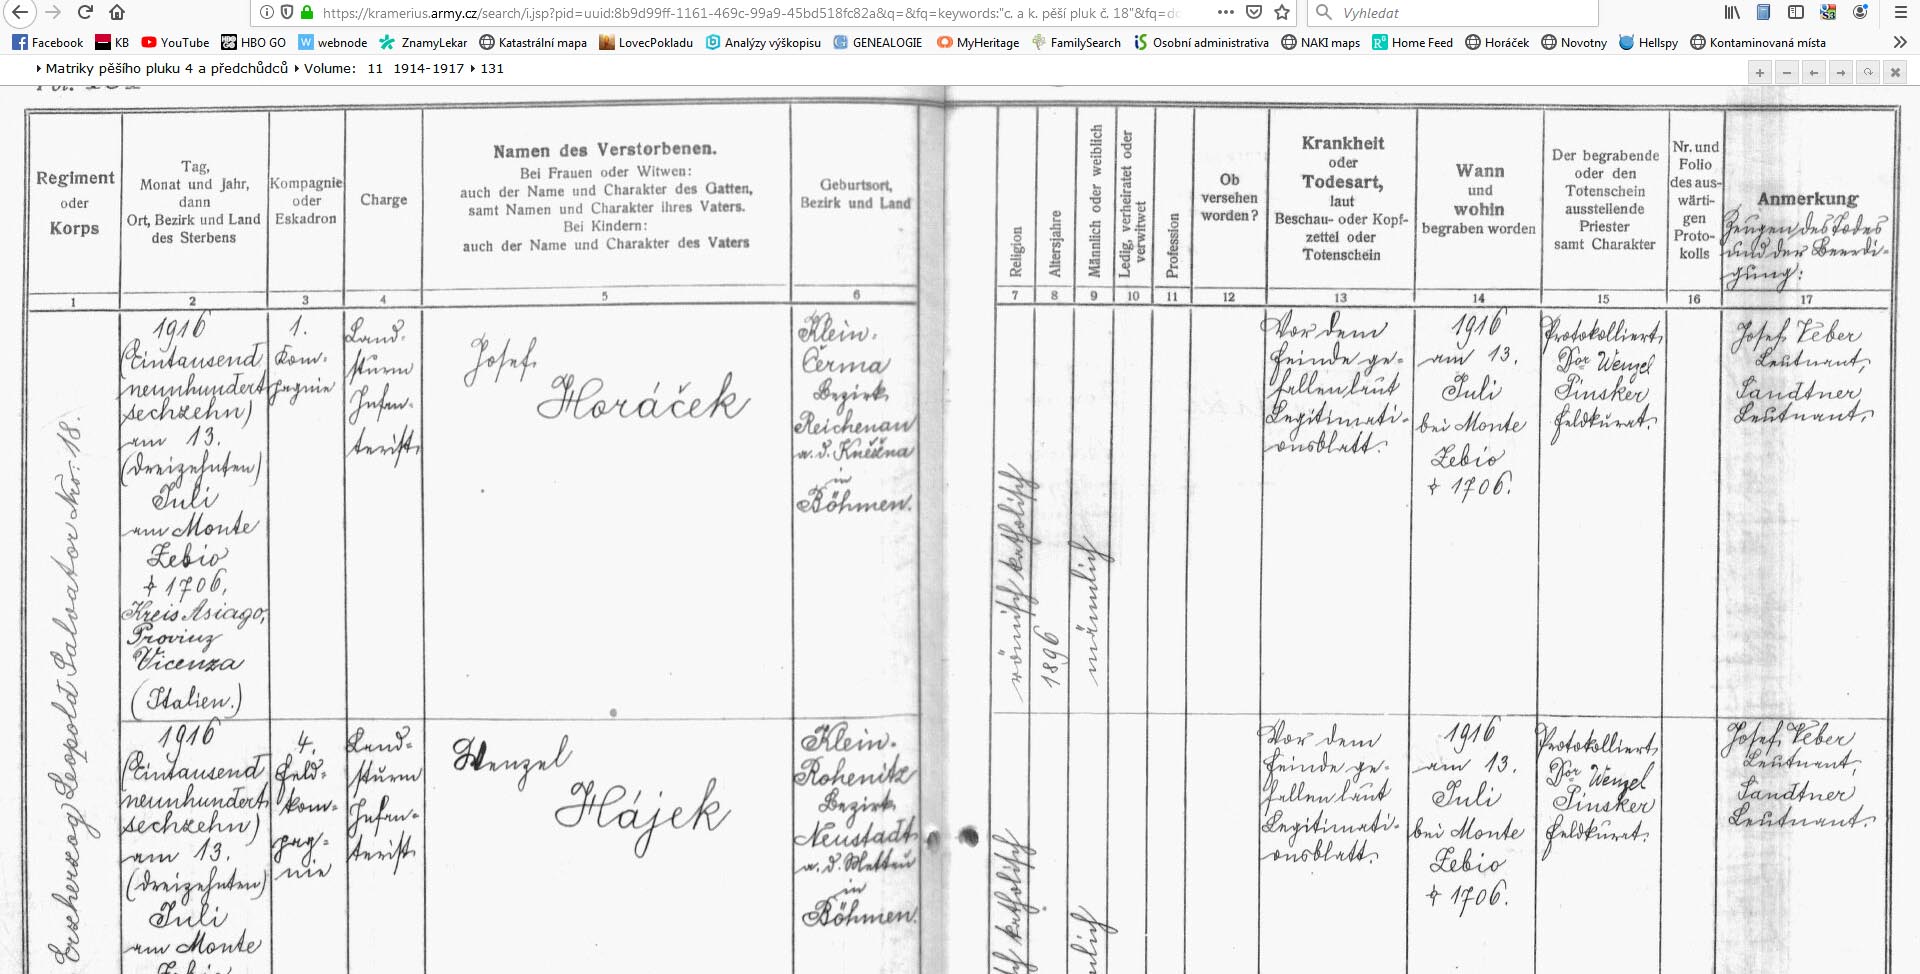 https://kramerius.army.cz/search/i.jsp?pid=uuid:8b9d99ff-1161-469c-99a9-45bd518fc82a&q=&fq=keywords:"c. a k. pěší pluk č. 18"&fq=do
Vyhledat
Facebook KB YouTube HBO GO webnode ZnamyLekar Katastrální mapa LovecPokladu Analýzy výškopisu GENEALOGIE MyHeritage FamilySearch Osobní administrativa NAKI maps Home Feed Horáček Novotny Hellspy Kontaminovaná místa
Matriky pěšího pluku 4 a předchůdců Volume: 11 1914-1917 131
Regiment
oder
Korps
Tag,
Monat und Jahr,
dann
Ort, Bezirk und Land
des Sterbens
Kompagnie
oder
Eskadron
Charge
Namen des Verstorbenen.
Bei Frauen oder Witwen:
auch der Name und Charakter des Gatten,
samt Namen und Charakter ihres Vaters.
Bei Kindern:
auch der Name und Charakter des Vaters
Geburtsort,
Bezirk und Land
Religion
Altersjahre
Männlich oder weiblich
Ledig, verheiratet oder
verwitwet
Profession
Ob
versehen
worden?
Krankheit
oder
Todesart,
laut
Beschau- oder Kopf-
zettel oder
Totenschein
Wann
und
wohin
begraben worden
Der begrabende
oder den
Totenschein
ausstellende
Priester
samt Charakter
Nr. und
Folio
des aus-
wärti-
gen
Proto-
kolls
Anmerkung
Zeugen des Todes
und der Beerdi-
gung:
1 2 3 4 5 6 7 8 9 10 11 12 13 14 15 16 17
Erzherzog Leopold Salvator Nro: 18.
1916
(Eintausend
neunhundert
sechzehn)
am 13.
(dreizehnten)
Juli
am Monte
Zebio
1706,
Kreis Asiago,
Provinz
Vicenza
(Italien.)
1.
Kom-
pagnie
Land-
sturm
Infan-
terist.
Josef
Horáček
Klein-
Čerma
Bezirk
Reichenau
a. d. Kněžna
in
Böhmen.
römisch katholisch
1896
männlich
Vor dem
Feinde ge-
fallen laut
Legitimati-
onsblatt.
1916
am 13.
Juli
bei Monte
Zebio
1706.
Protokolliert
Dor Wenzel
Pinsker
Feldkurat.
Josef Veber
Leutnant,
Sandtner
Leutnant.
1916
(Eintausend
neunhundert
sechzehn)
am 13.
(dreizehnten)
Juli
am Monte
Zebio
4.
Feld-
kom-
pag-
nie
Land-
sturm
Infan-
terist
Wenzel
Hájek
Klein-
Rohenitz
Bezirk
Neustadt
a. d. Mettau
in
Böhmen.
katholisch
Vor dem
Feinde ge-
fallen laut
Legitimati-
onsblatt.
1916
am 13.
Juli
bei Monte
Zebio
1706.
Protokolliert
Dor Wenzel
Pinsker
Feldkurat.
Josef Veber
Leutnant,
Sandtner
Leutnant.